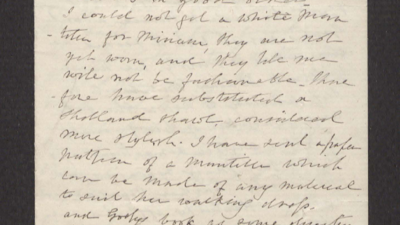 in good
I could not get a white Man
- tilla for Miriam, they are not
yet worn, and they tell me
will not be fashionable. There
- fore have substituted a
Shetland shawl, considered
more stylish. I have sent a paper
pattern of a mantilla which
can be made of any material
to suit her walking dress.
and books as some